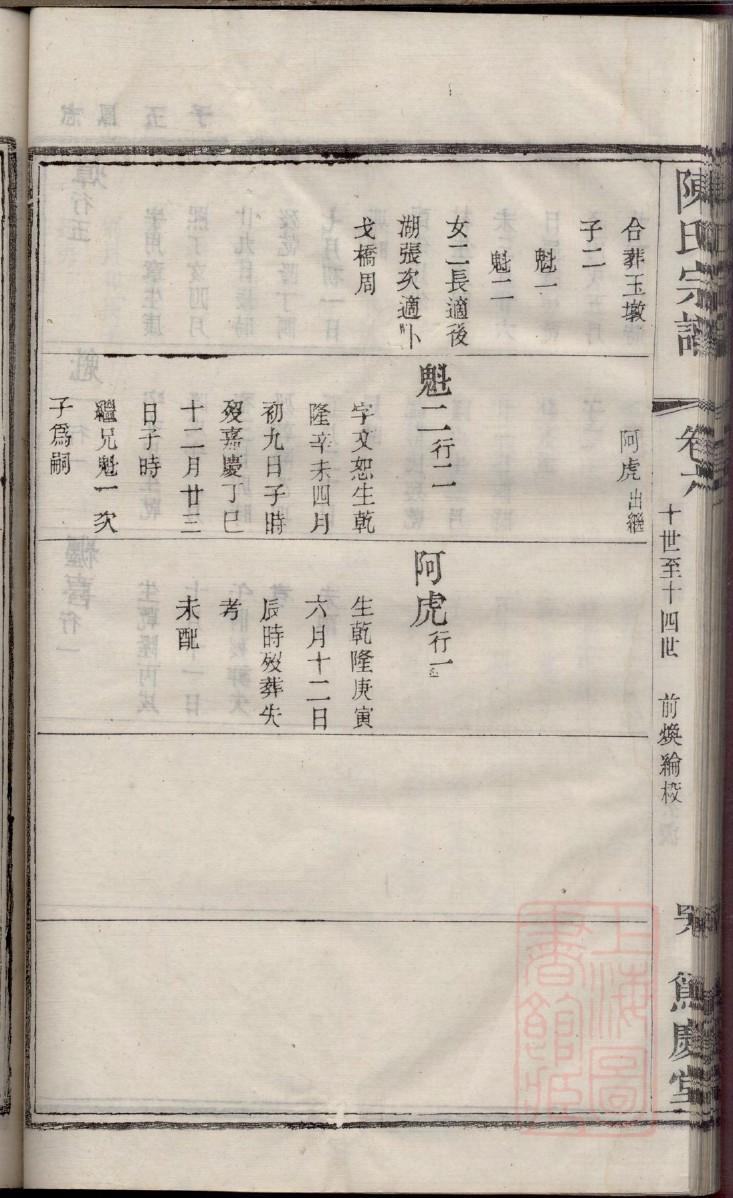 陳氏宗譜
卷六
十世至十四世
前煥綸校
篤慶堂
合葬玉墩
子二
魁一
魁二
女二長適後
湖張次適卜
戈橋周
阿虎出繼
魁二行二
字文恕生乾
隆辛未四月
初九日子時
歿嘉慶丁巳
十二月廿三
日子時
繼兄魁一次
子爲嗣
阿虎行一
生乾隆庚寅
六月十二日
辰時歿葬失
考
未配
上海圖
書館